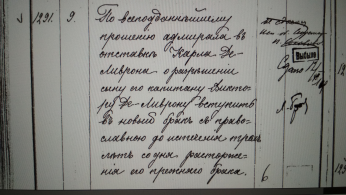 1291. 9. По всеподданнѣйшему
прошенію адмирала въ
отставкѣ Карла Де-
Ливрона о разрѣшеніи
сыну его капитану Викто-
ру Де-Ливрону вступить
въ новый бракъ съ право-
славною до истеченія трехъ
лѣтъ со дня расторже-
нія его прежняго брака.
6